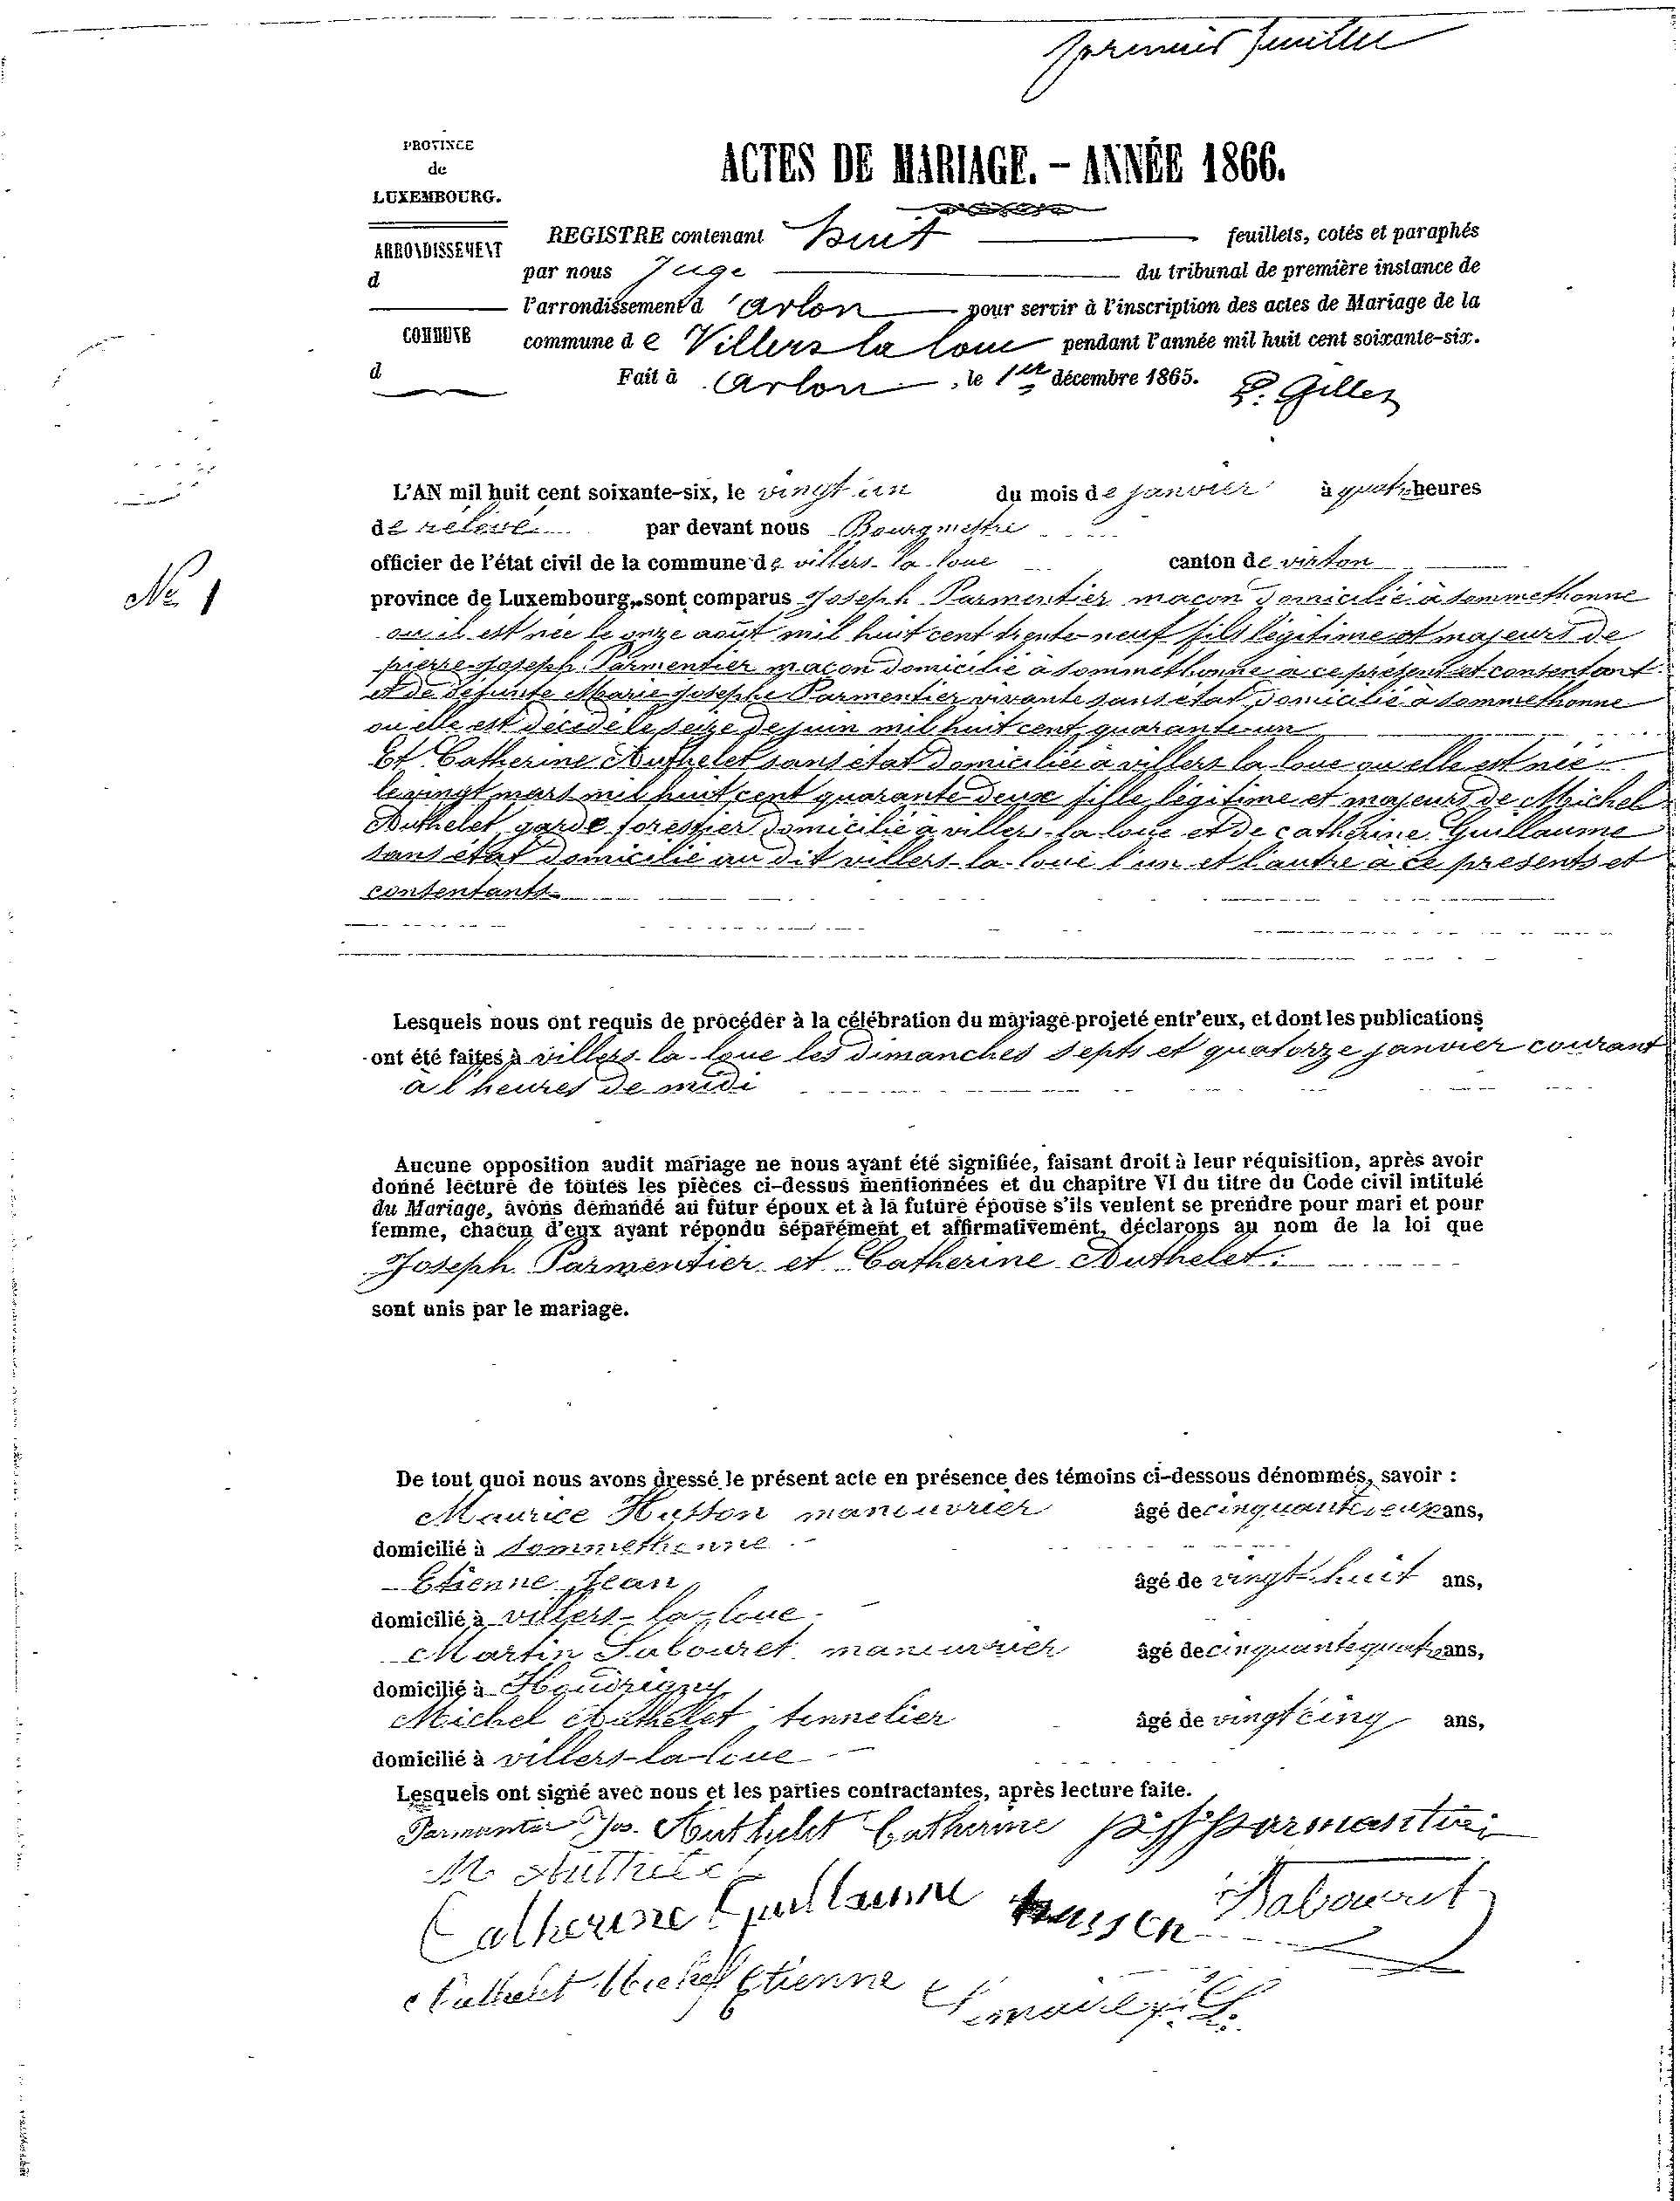 premier feuillet
PROVINCE
de
LUXEMBOURG.
ARRONDISSEMENT
d
COMMUNE
d
ACTES DE MARIAGE. - ANNÉE 1866.
REGISTRE contenant huit feuillets, cotés et paraphés
par nous Juge du tribunal de première instance de
l'arrondissement d'Arlon pour servir à l'inscription des actes de Mariage de la
commune de Villers la loue pendant l'année mil huit cent soixante-six.
Fait à Arlon, le 1er décembre 1865.
No 1
L'AN mil huit cent soixante-six, le vingt un du mois de janvier à quatre heures
de relevé par devant nous Bourgmestre
officier de l'état civil de la commune de villers-la-loue canton de virton
province de Luxembourg, sont comparus Joseph Parmentier maçon domicilié à sommethonne
ou il est née le onze août mil huit cent trente neuf fils légitime et majeurs de
pierre-Joseph Parmentier maçon domicilié à sommethonne à ce présent et consentant
et de defunte Marie Josephe Parmentier vivante sans état domicilié à sommethonne
ou elle est décédé le seize de juin mil huit cent quarante un
Et Catherine Authelet sans état domiciliée à villers la loue ou elle est née
le vingt mars mil huit cent quarante deux fille légitime et majeurs de Michel
Authelet garde forestier domicilié à villers-la loue et de catherine Guillaume
sans état domicilié au dit villers-la-loue l'un et l'autre à ce présents et
consentants
Lesquels nous ont requis de procéder à la célébration du mariage projeté entr'eux, et dont les publications
ont été faites à villers-la-loue les dimanches sept et quatorze janvier courant
à l'heures de midi
Aucune opposition audit mariage ne nous ayant été signifiée, faisant droit à leur réquisition, après avoir
donné lecture de toutes les pièces ci-dessus mentionnées et du chapitre VI du titre du Code civil intitulé
du Mariage, avons demandé au futur époux et à la future épouse s'ils veulent se prendre pour mari et pour
femme, chacun d'eux ayant répondu séparément et affirmativement, déclarons au nom de la loi que
Joseph Parmentier et Catherine Authelet.
sont unis par le mariage.
De tout quoi nous avons dressé le présent acte en présence des témoins ci-dessous dénommés, savoir :
Maurice Husson manuvrier âgé de ans,
domicilié à sommethonne
Etienne Jean âgé de vingt-huit ans,
domicilié à villers-la-loue
Martin manuvrier âgé de cinquante quatre ans,
domicilié à Houdrigny
Michel Authelet tonnelier âgé de vingt cinq ans,
domicilié à villers-la-loue
Lesquels ont signé avec nous et les parties contractantes, après lecture faite.
Parmentier Jos. Authelet Catherine
M Authelet
Catherine Guillaume husson
Authelet Michel Etienne